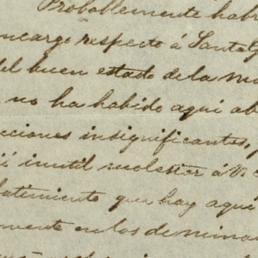 Probablemente habr
ncargo respecto á Santa
del buen estado de la m
no ha habido aquí ab
cciones insignificantes,
inutil molester á V.
batimiento que hay aqui
mente en los de mina